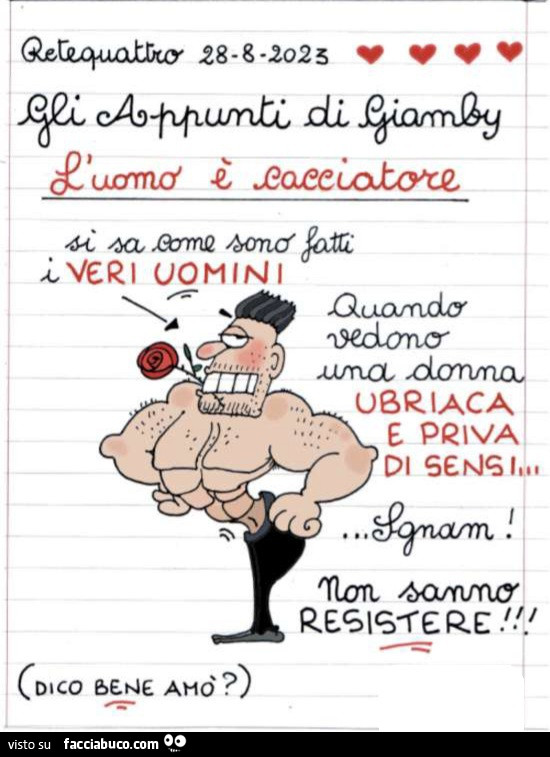 Retequattro 28-8-2023
Gli Appunti di Giamby
L'uomo è cacciatore
si sa come sono fatti
i VERI UOMINI
Quando
vedono
una donna
UBRIACA
E PRIVA
DI SENSI...
...Sgnam!
Non sanno
RESISTERE!!!
(DICO BENE AMÒ?)
visto su facciabuco.com